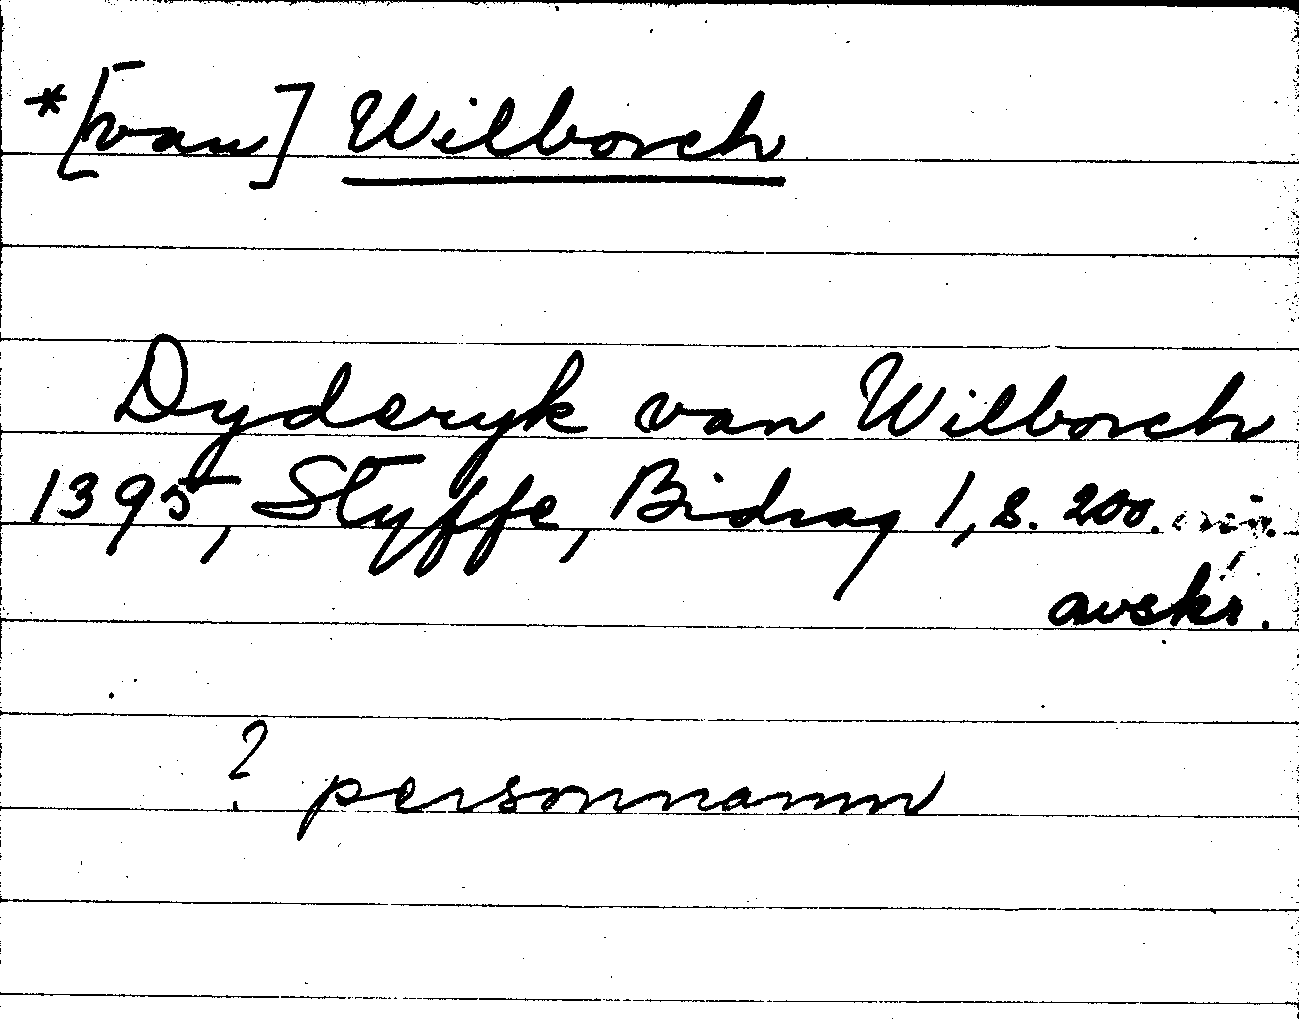 *[van] Wilborch
Dyderyk van Wilborch
1395, Styffe, Bidrag 1, s. 200.
avskr.
? personnamn